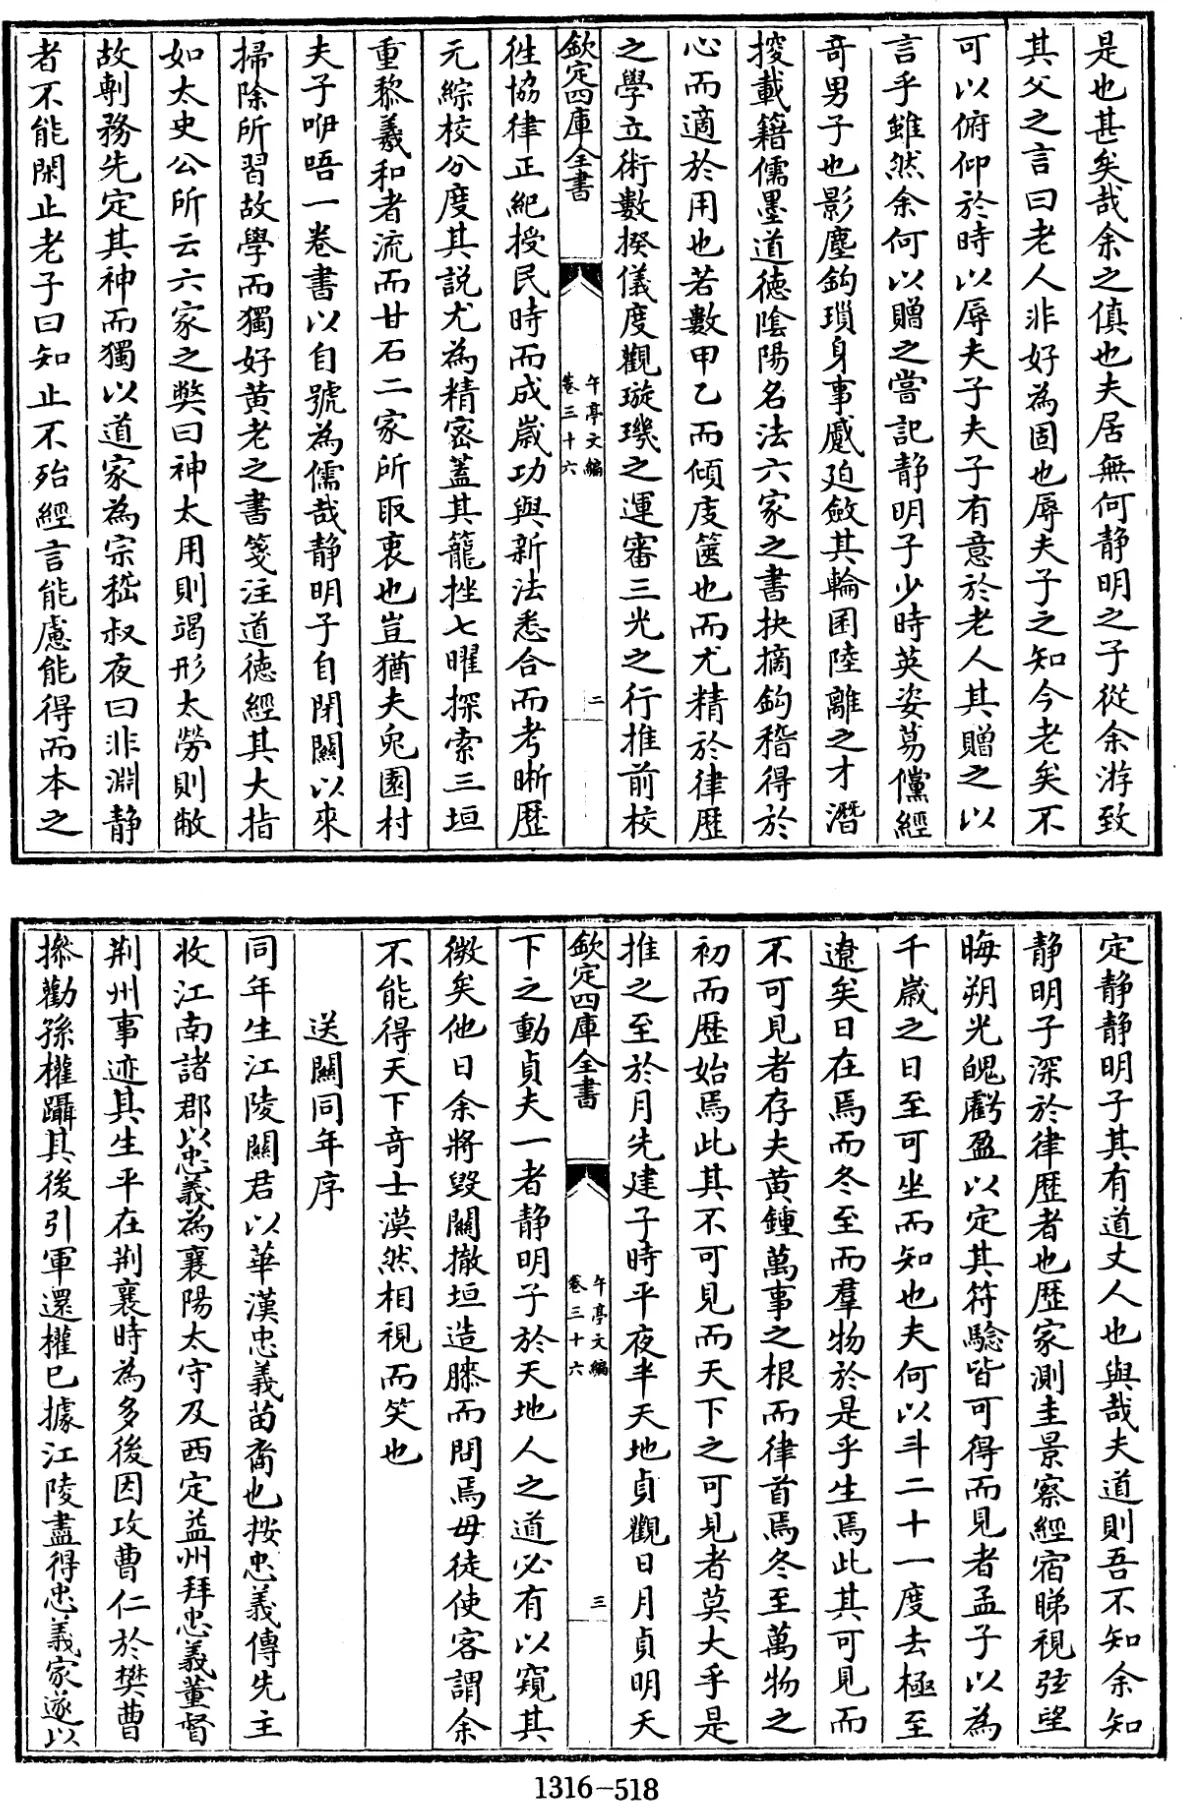 是也甚矣哉余之傎也夫居無何静明之子從余游致
其父之言曰老人非好為固也辱夫子之知今老矣不
可以俯仰於時以辱夫子夫子有意於老人其贈之以
言乎雖然余何以贈之嘗記静明子少時英姿蕩儻經
竒男子也影塵鈎瑣身事慼廹斂其輪囷陸離之才潛
摉載籍儒墨道徳隂陽名法六家之書抉摘鈎稽得於
心而適於用也若數甲乙而傾庋篋也而尤精於律歴
之學立術數揆儀度觀璇璣之運審三光之行推前校
欽定四庫全書
午亭文編
卷三十六
二
徃協律正紀授民時而成嵗功與新法悉合而考晰歴
元綜校分度其説尤為精宻蓋其籠挫七曜探索三垣
重黎羲和者流而甘石二家所取衷也豈猶夫兎園村
夫子咿唔一卷書以自號為儒哉静明子自閉闗以來
掃除所習故學而獨好黄老之書箋注道徳經其大指
如太史公所云六家之獘曰神太用則竭形太勞則敝
故剸務先定其神而獨以道家為宗嵇叔夜曰非淵静
者不能閑止老子曰知止不殆經言能慮能得而本之
定静静明子其有道丈人也與哉夫道則吾不知余知
静明子深於律歴者也歴家測圭景察經宿睇視弦望
晦朔光魄虧盈以定其符驗皆可得而見者孟子以為
千嵗之日至可坐而知也夫何以斗二十一度去極至
遼矣日在焉而冬至而羣物於是乎生焉此其可見而
不可見者存夫黄鍾萬事之根而律首焉冬至萬物之
初而歴始焉此其不可見而天下之可見者莫大乎是
推之至於月先建子時平夜半天地貞觀日月貞明天
欽定四庫全書
午亭文編
卷三十六
三
下之動貞夫一者静明子於天地人之道必有以窺其
微矣他日余將毀闗撤垣造膝而問焉毋徒使客謂余
不能得天下竒士漠然相視而笑也
送闗同年序
同年生江陵闗君以華漢忠義苗裔也按忠義傳先主
收江南諸郡以忠義為襄陽太守及西定益州拜忠義董督
荆州事迹其生平在荆襄時為多後因攻曹仁於樊曹
摻勸孫權躡其後引軍還權已據江陵盡得忠義家遂以
1316-518